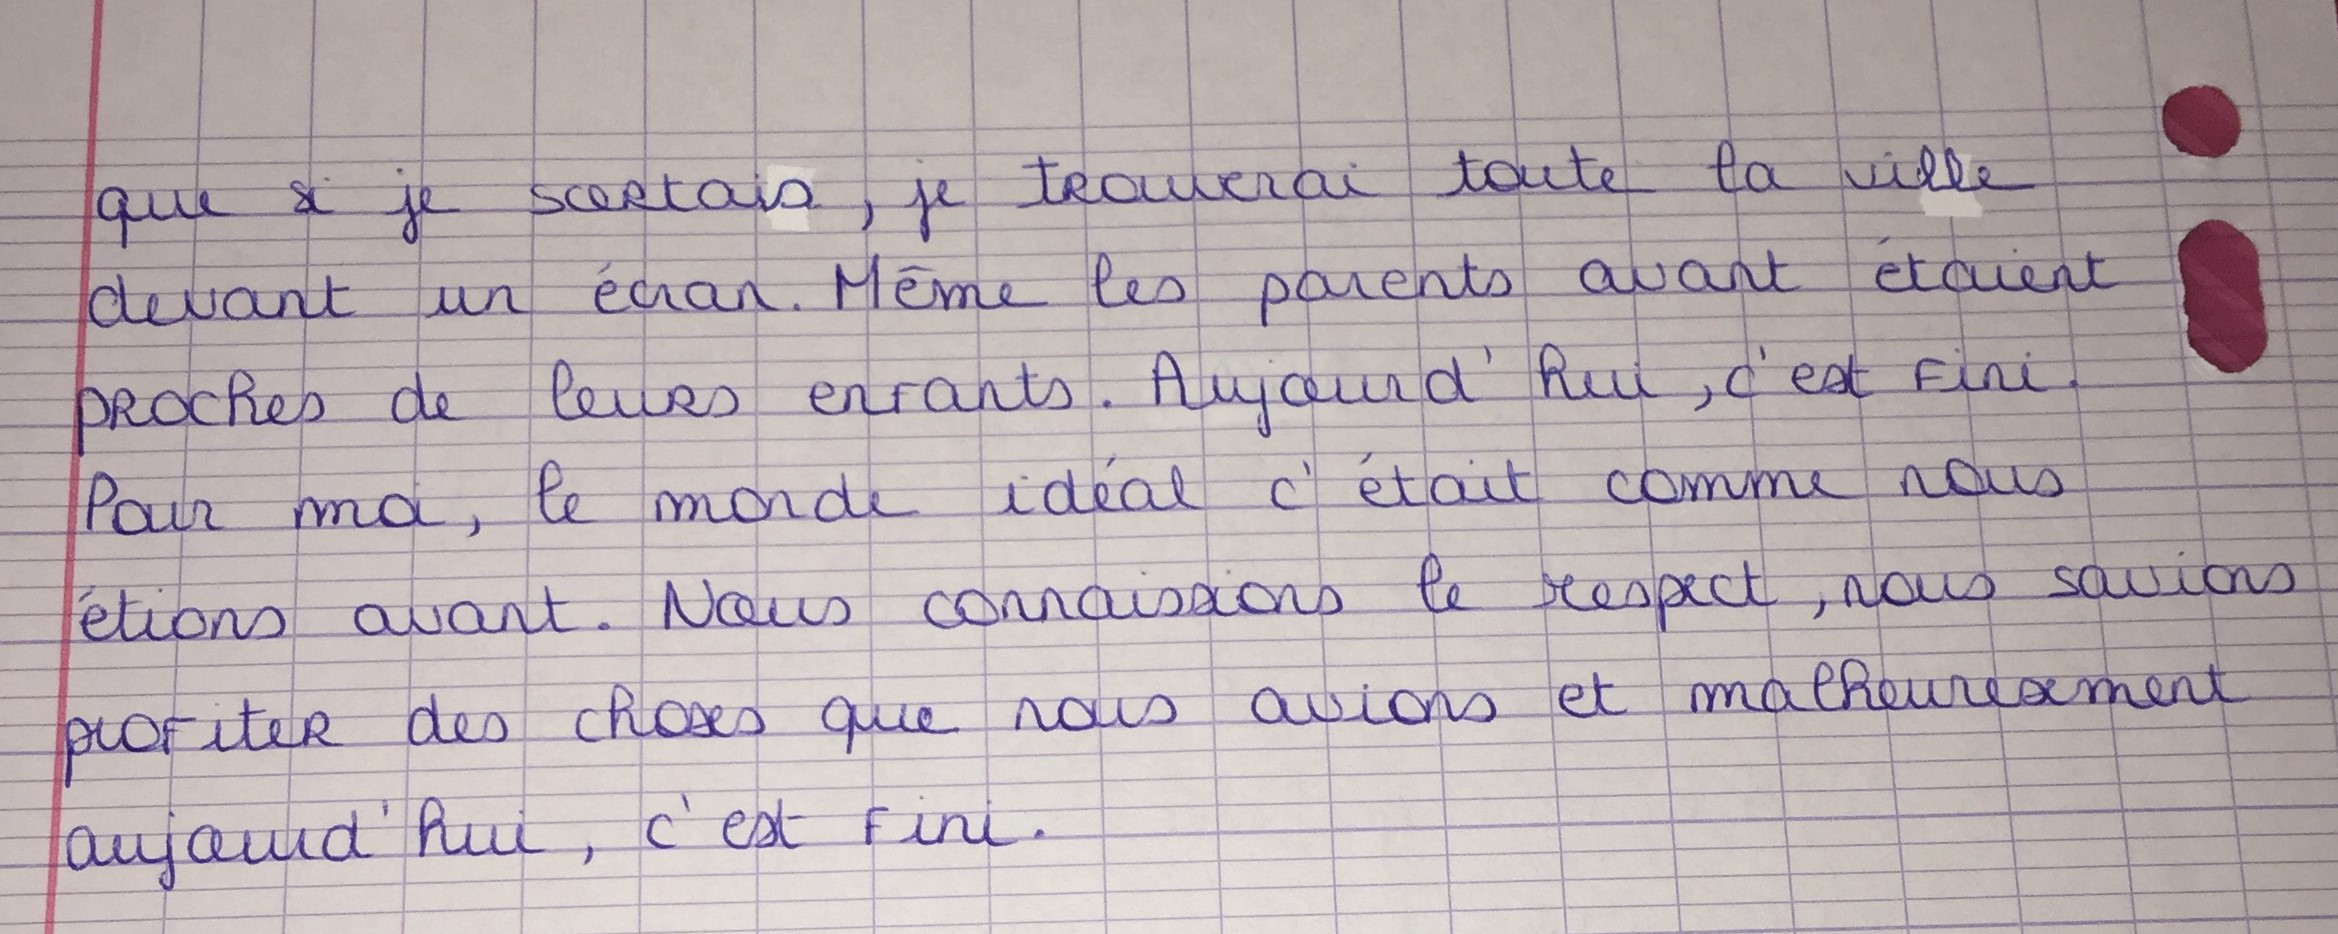 que si je sortais, je trouverai toute la ville
devant un écran. Même les parents avant étaient
proches de leurs enfants. Aujourd'hui, c'est fini.
Pour moi, le monde idéal c'était comme nous
étions avant. Nous connaissions le respect, nous savions
profiter des choses que nous avions et malheureusement
aujourd'hui, c'est fini.